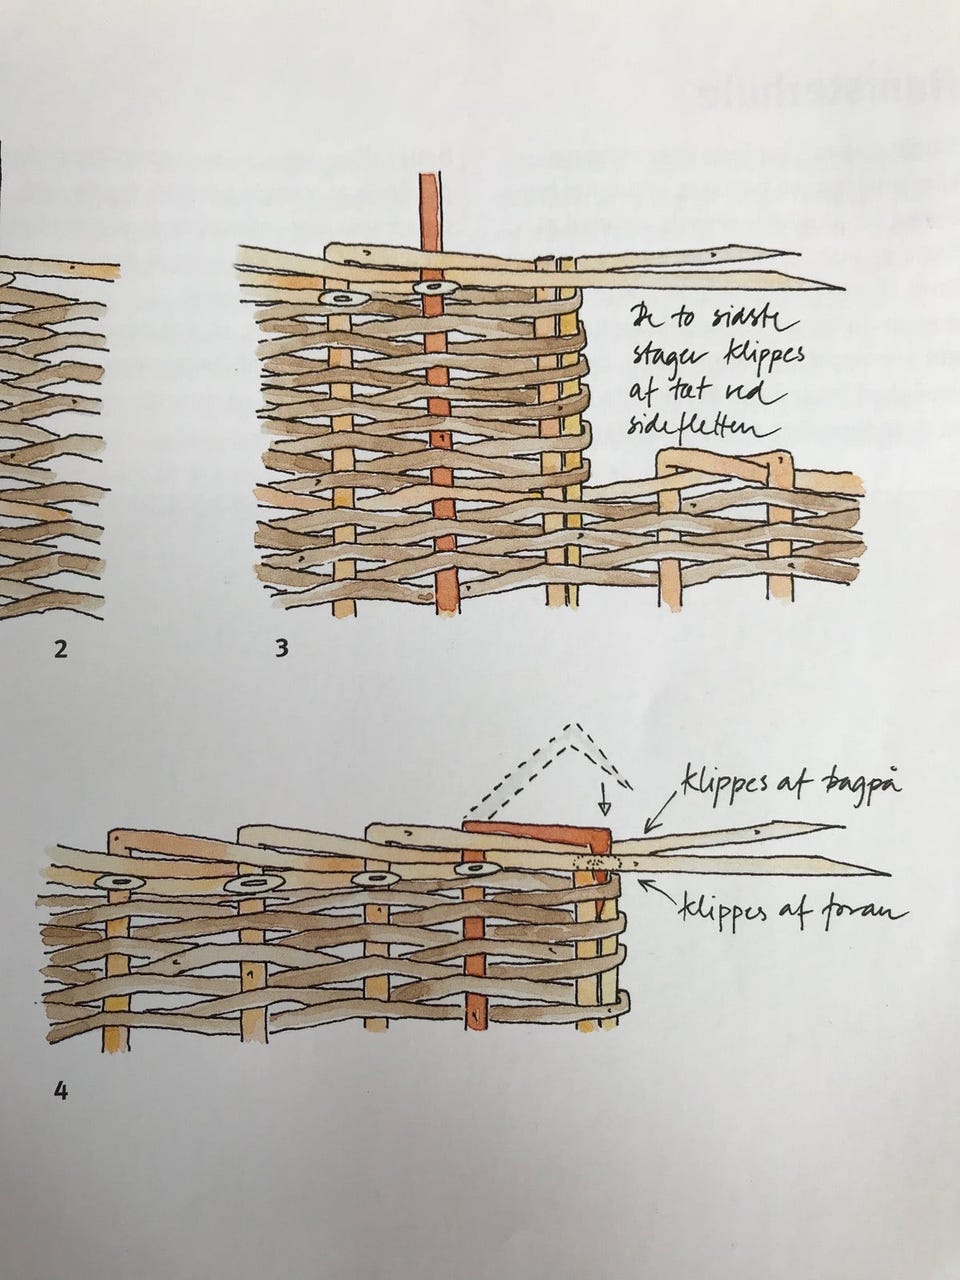 De to sidste
stager klippes
af tæt ved
sidefletten
2
3
klippes af bagpå
klippes af foran
4